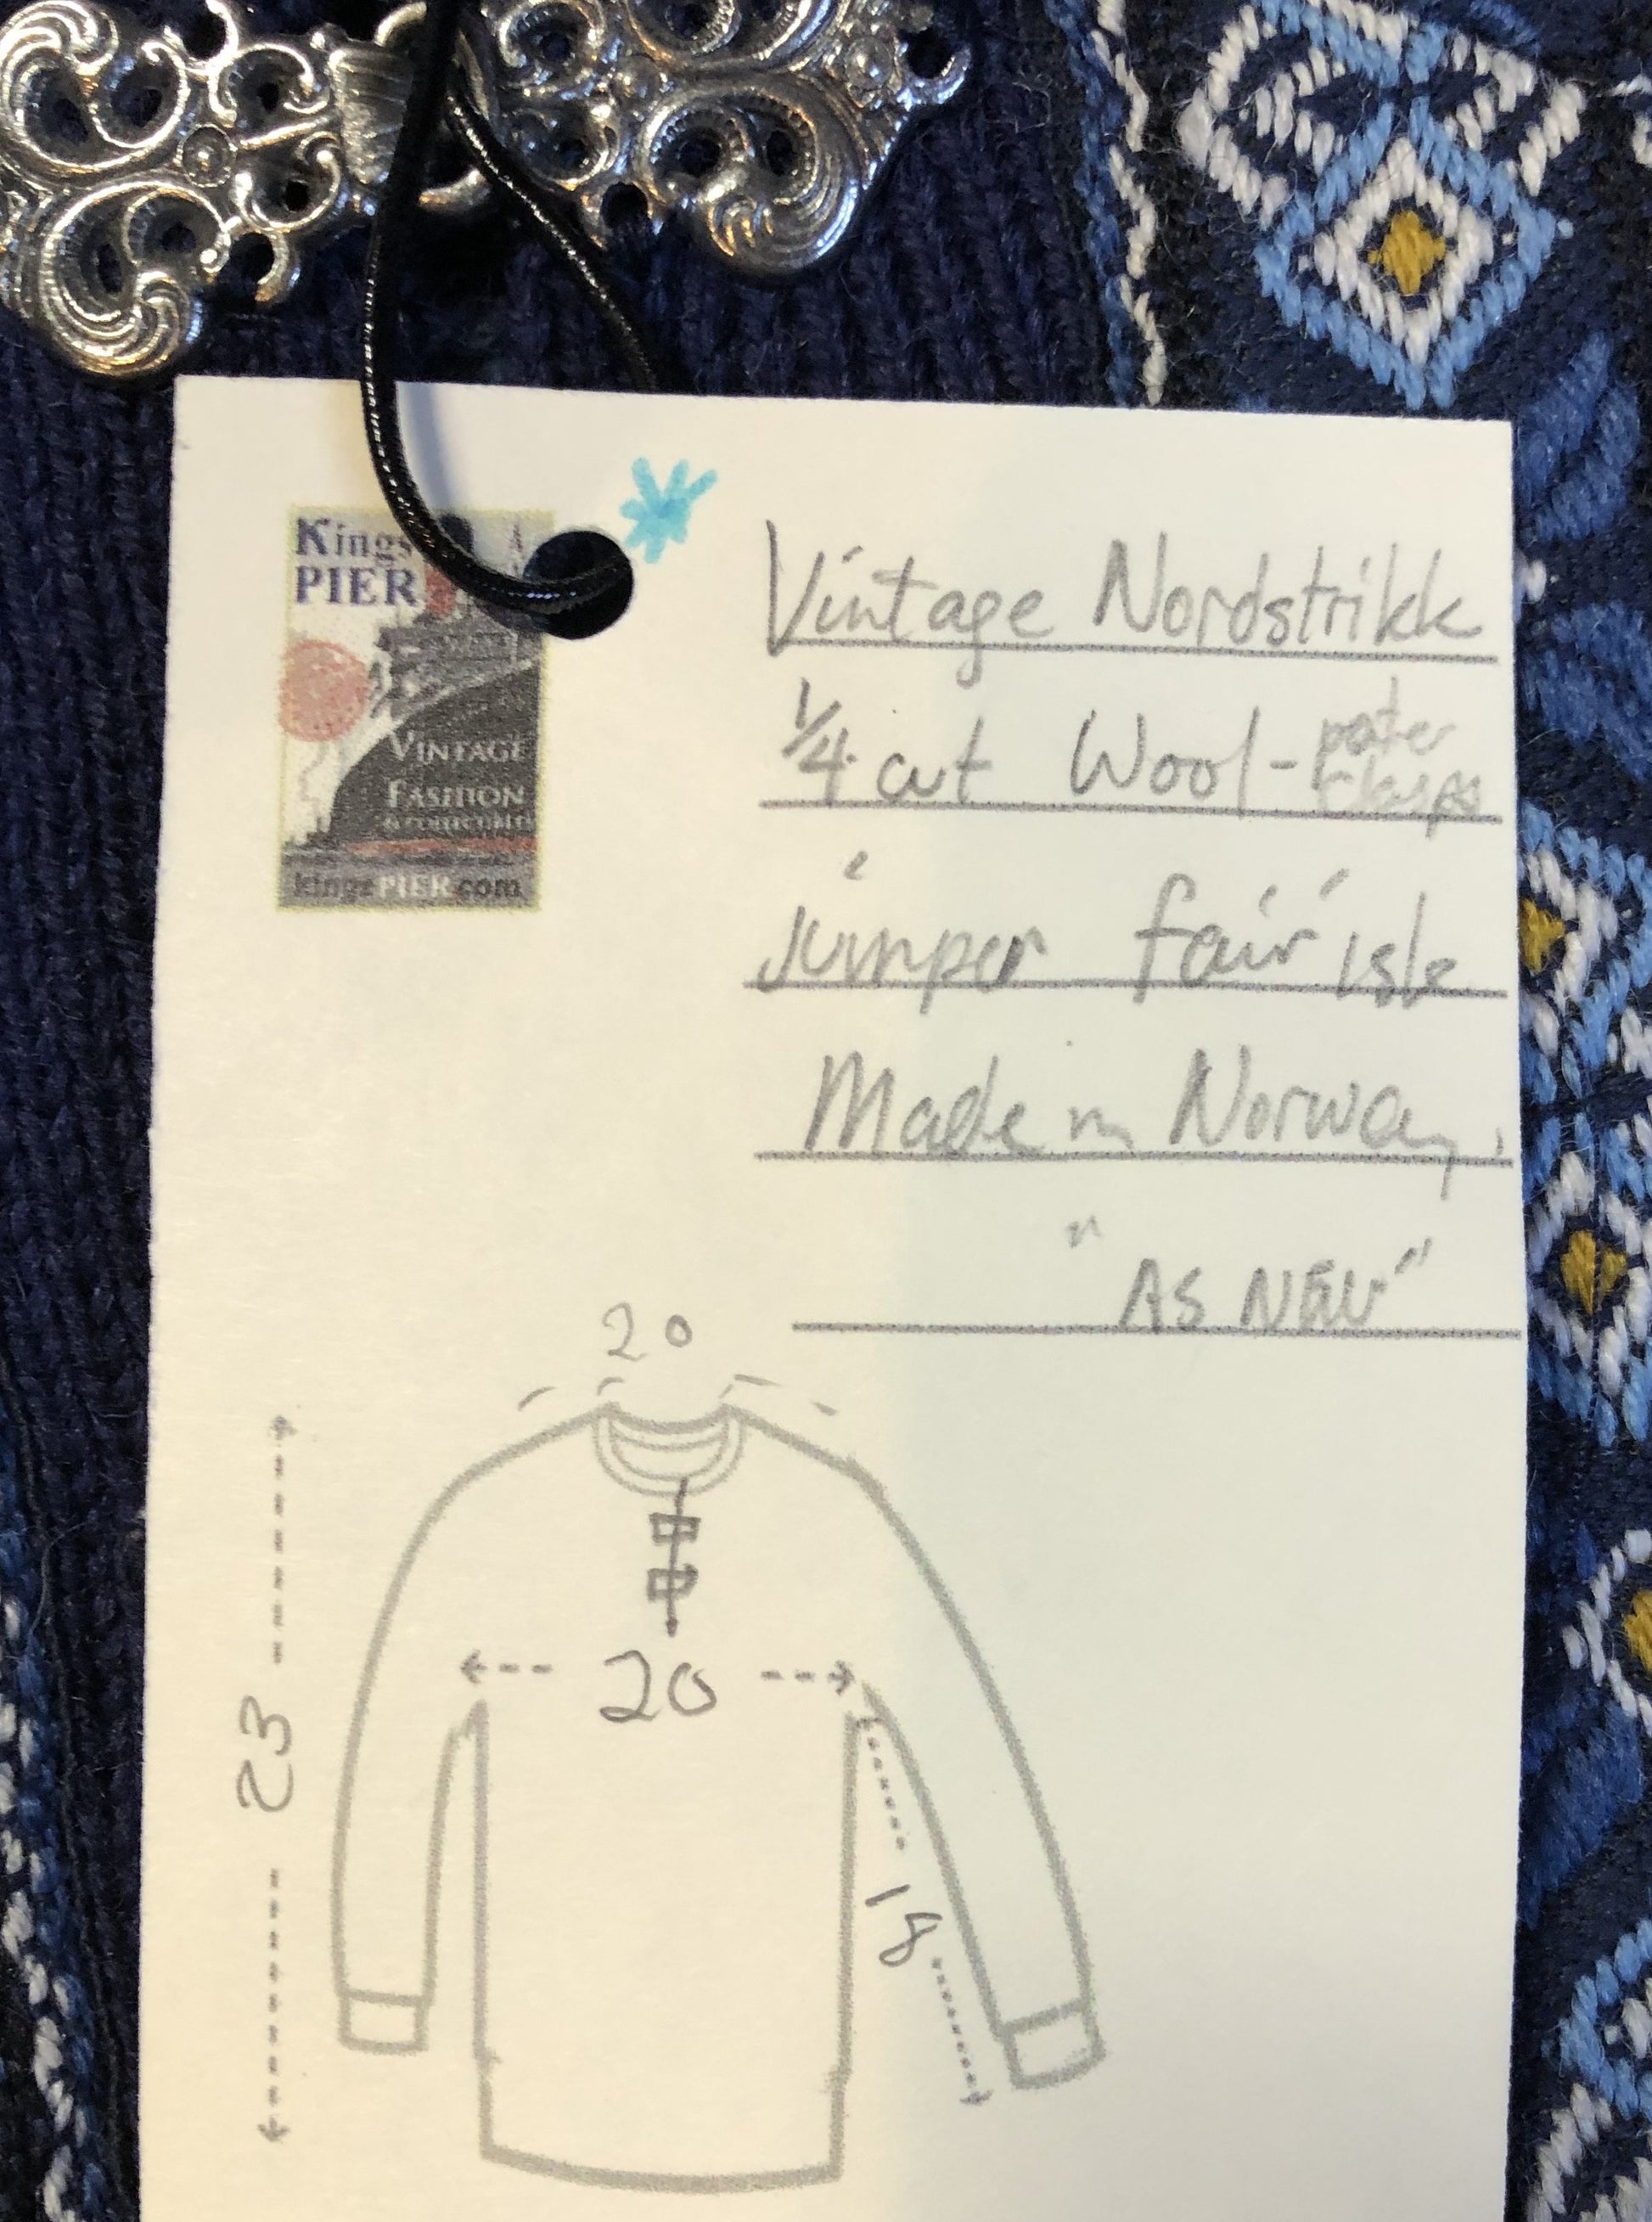 Kings
PIER
VINTAGE
FASHION
& COLLECTIBLES
kingsPIER.com
Vintage Nordstrikk
1/4 cut Wool - pewter
clasps
jumper fair isle
Made in Norway.
"AS NEW"
20
20
23
18